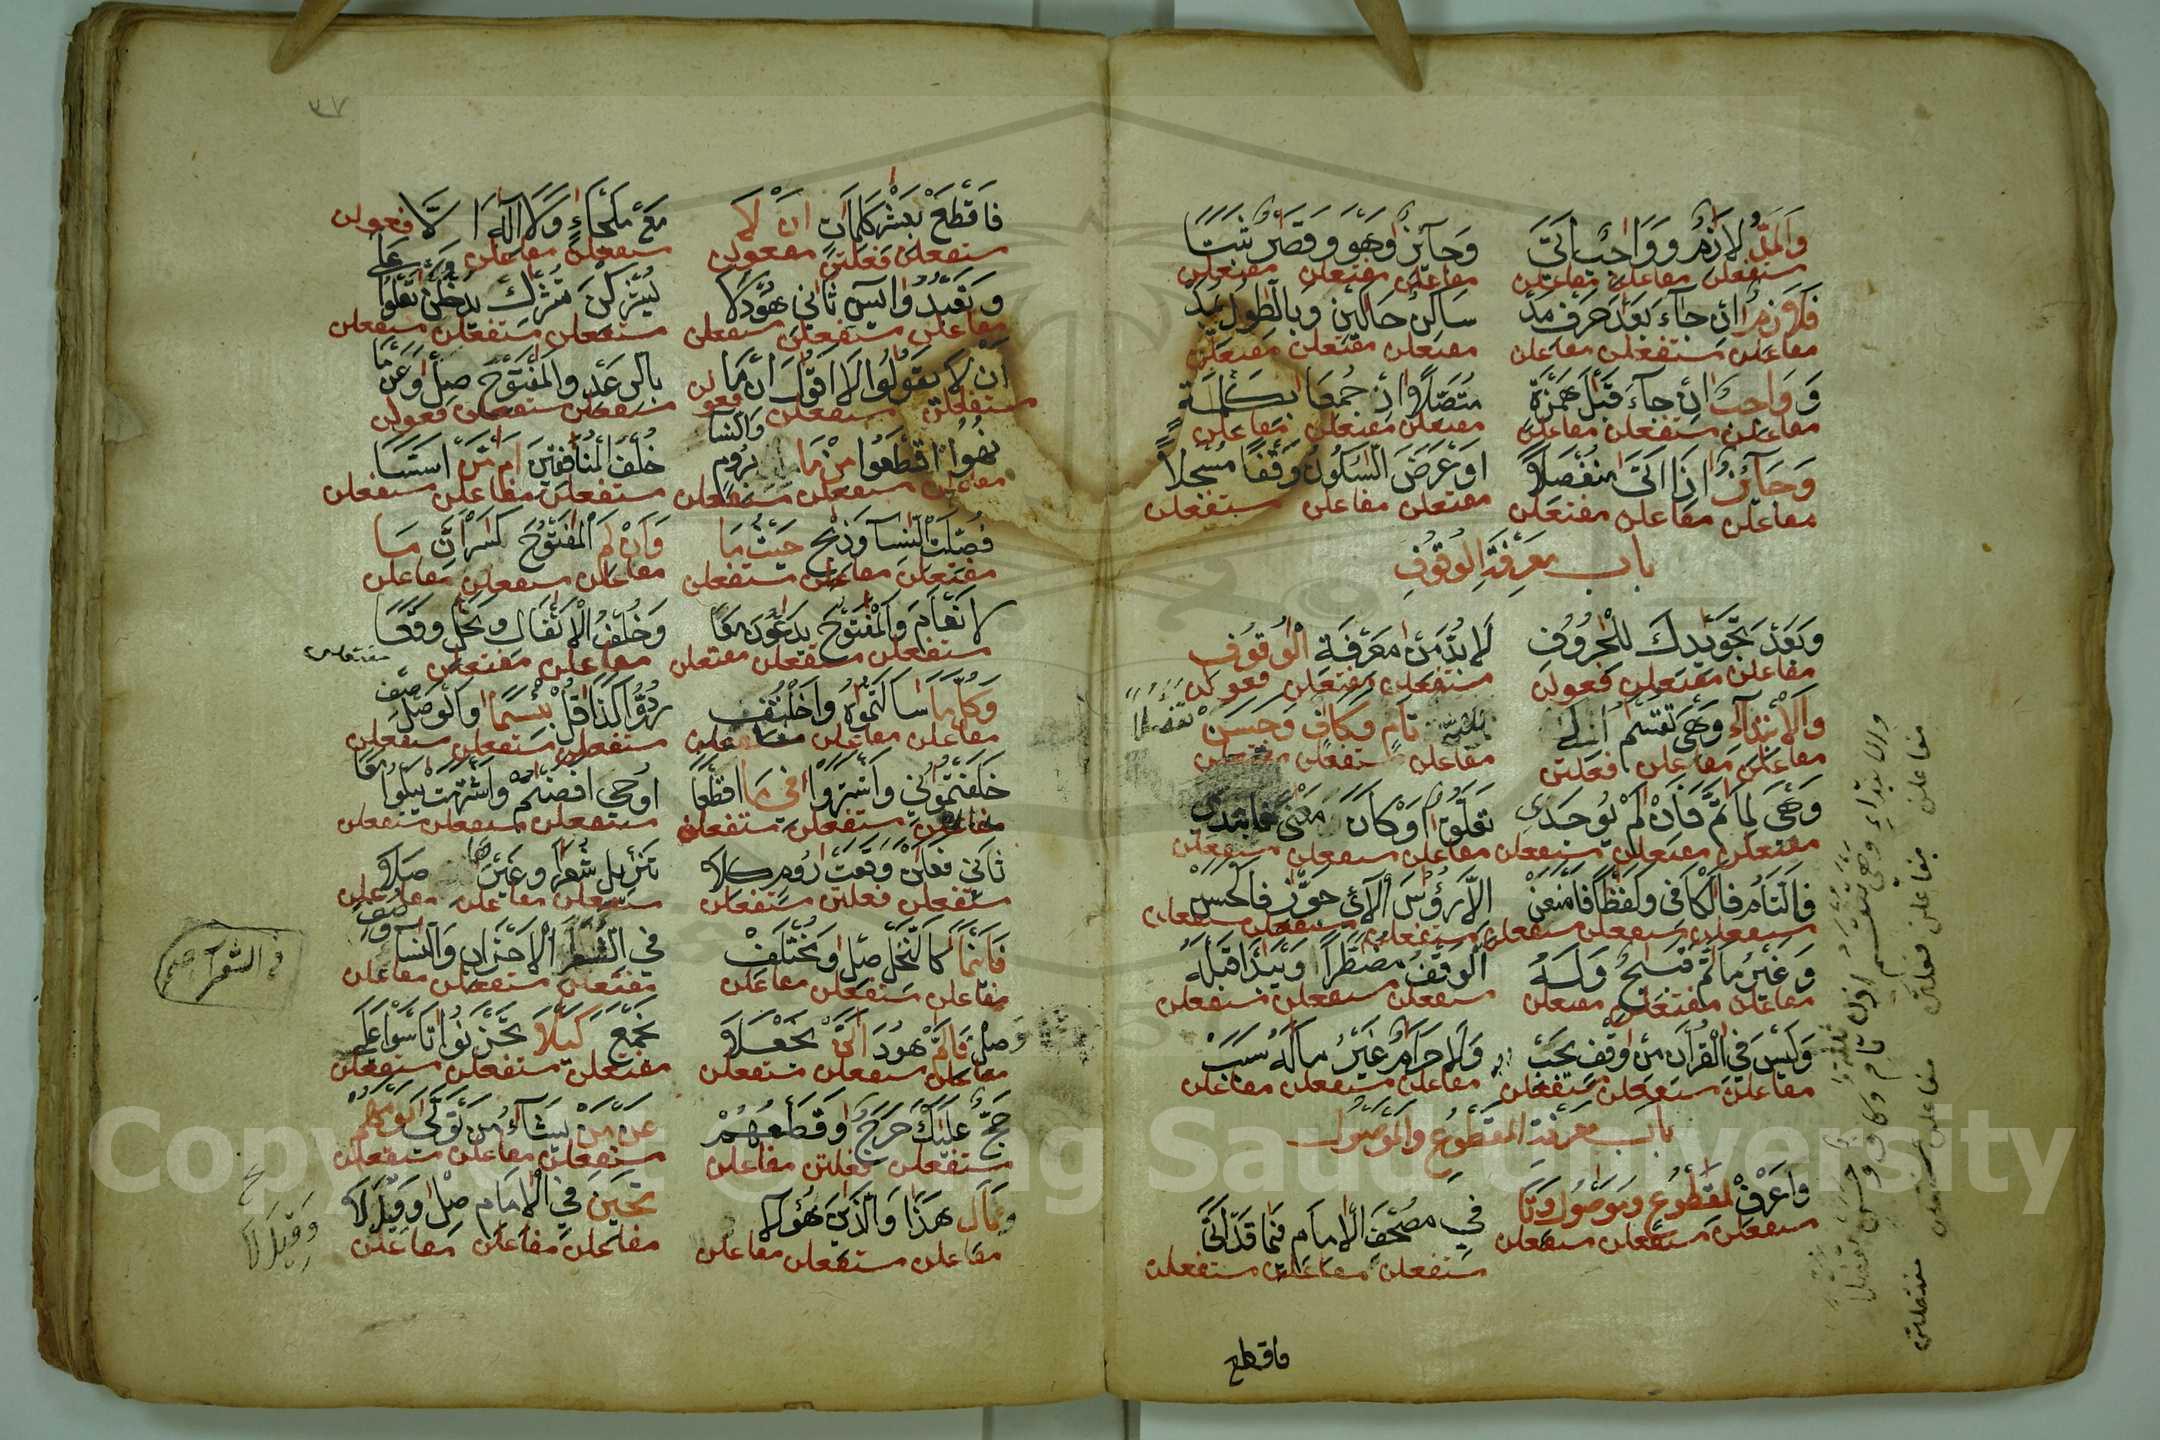 وَالْمَدُّ لَازِمٌ وَوَاجِبٌ اَتَى وَجَآئِزٌ وَهْوَ وَقَصْرٌ ثَبَتَا
مستفعلن مفاعلن مفاعلن مفاعلن مفتعلن مفتعلن
فَلَازِمٌ اِنْ جَآءَ بَعْدَ حَرْفِ مَدٍّ سَاكِنُ حَالَيْنِ وَبِالطُّولِ يُمَدّ
مفاعلن مستفعلن مفاعلن مفتعلن مفتعلن مفتعلن
وَوَاجِبٌ اِنْ جَآءَ قَبْلَ هَمْزَةٍ مُتَّصِلًا اِنْ جُمِعَا بِكَلِمَةٍ
مفاعلن مستفعلن مفاعلن مفتعلن مفتعلن مفاعلن
وَجَآئِزٌ اِذَا اَتَى مُنْفَصِلًا اَوْ عَرَضَ السُّكُونُ وَقْفًا مُسْجَلًا
مفاعلن مفاعلن مفتعلن مفتعلن مفاعلن مستفعلن
باب مَعْرِفَةِ الْوُقُوفِ
وَبَعْدَ تَجْوِيدِكَ لِلْحُرُوفِ لَا بُدَّ مِنْ مَعْرِفَةِ الْوُقُوفِ
مفاعلن مفتعلن فعولن مستفعلن مفتعلن فعولن
وَالْاِبْتِدَآءِ وَهْيَ تُقْسَمُ اِذَنْ ثَلَاثَةً تَامٌ وَكَافٍ وَحَسَنْ
مفاعلن مفاعلن فعلتن مفاعلن مستفعلن مفتعلن
تفضلا
وَهْيَ لِمَا تَمَّ فَاِنْ لَمْ يُوجَدِ تَعَلُّقٌ اَوْ كَانَ مَعْنًى فَابْتَدِي
مفتعلن مفتعلن مستفعلن مفاعلن مستفعلن مستفعلن
فَالتَّامُ فَالْكَافِي وَلَفْظًا فَامْنَعَنْ اِلَّا رُؤُسَ الْآيِ جَوِّزْ فَالْحَسَنْ
مستفعلن مستفعلن مستفعلن مستفعلن مستفعلن مستفعلن
وَغَيْرُ مَا تَمَّ قَبِيحٌ وَلَهُ اَلْوَقْفُ مُضْطَرًّا وَيُبْدَا قَبْلَهُ
مفاعلن مفتعلن مفتعلن مستفعلن مستفعلن مستفعلن
وَلَيْسَ فِي الْقُرْاٰنِ مِنْ وَقْفٍ يَجِبْ وَلَا حَرَامٌ غَيْرُ مَا لَهُ سَبَبْ
مفاعلن مستفعلن مستفعلن مفاعلن مستفعلن مفاعلن
باب مَعْرِفَةِ الْمَقْطُوعِ وَالْمَوْصُولِ
وَاعْرِفْ لِمَقْطُوعٍ وَمَوْصُولٍ وَتَا فِي مُصْحَفِ الْاِمَامِ فِيمَا قَدْ اَتَى
مستفعلن مستفعلن مستفعلن مستفعلن مفاعلن مستفعلن
فاقطع
والابتداءِ وهي تقسم اذن تام وكاف وحسن تفضلا
مفاعلن مفاعلن فعلتن مفاعلن مستفعلن مفتعلن
٣٧
فَاقْطَعْ بِعَشْرِ كَلِمَاتٍ اَنْ لَا مَعْ مَلْجَاءٍ وَلَا اِلٰهَ اِلَّا
مستفعلن فعلتن مفعولن مستفعلن مفاعلن فعولن
وَتَعْبُدُوا يٰسٓ ثَانِي هُودَ لَا يُشْرِكْنَ تُشْرِكْ يَدْخُلَنْ تَعْلُوا عَلَى
مفاعلن مستفعلن مستفعلن مستفعلن مستفعلن مستفعلن
اَنْ لَا يَقُولُوا لَا اَقُولَ اِنَّ مَا بِالرَّعْدِ وَالْمَفْتُوحَ صِلْ وَعَنْ مَا
مستفعلن مستفعلن فعولن مستفعلن مستفعلن فعولن
نُهُوا اقْطَعُوا مِنْ مَا بِرُومٍ وَالنِّسَا خُلْفُ الْمُنَافِقِينَ اَمْ مَنْ اَسَّسَا
مفاعلن مستفعلن مستفعلن مستفعلن مفاعلن مستفعلن
فُصِّلَتِ النِّسَا وَذِبْحٍ حَيْثُ مَا وَاَنْ لَمِ الْمَفْتُوحَ كَسْرُ اِنَّ مَا
مفتعلن مفاعلن مستفعلن مفاعلن مستفعلن مفاعلن
لَانْعَامَ وَالْمَفْتُوحَ يَدْعُونَ مَعَا وَخُلْفُ الْاَنْفَالِ وَنَحْلٍ وَقَعَا
مستفعلن مستفعلن مفتعلن مفاعلن مفتعلن مفتعلن
وَكُلِّ مَا سَاَلْتُمُوهُ وَاخْتُلِفْ رُدُّوا كَذَا قُلْ بِئْسَمَا وَالْوَصْلَ صِفْ
مفاعلن مفاعلن مفاعلن مستفعلن مستفعلن مستفعلن
خَلَفْتُمُونِي وَاشْتَرَوْا فِي مَا اقْطَعَا اُوحِي اَفَضْتُمْ وَاشْتَهَتْ يَبْلُوا مَعَا
مفاعلن مستفعلن مستفعلن مستفعلن مستفعلن مستفعلن
ثَانِي فَعَلْنَ وَقَعَتْ رُومٌ كِلَا تَنْزِيلُ شُعَرَا وَغَيْرَهَا صِلَا
مستفعلن فعلتن مستفعلن مستفعلن مفاعلن مفاعلن
فَاَيْنَمَا كَالنَّحْلِ صِلْ وَمُخْتَلَفْ فِي الشُّعَرَا الْاَحْزَابِ وَالنِّسَا وُصِفْ
مفاعلن مستفعلن مفاعلن مفتعلن مستفعلن مفاعلن
في الشعرا صح
وَصِلْ فَاِلَّمْ هُودَ اَلَّنْ نَجْعَلَ نَجْمَعَ كَيْلَا تَحْزَنُوا تَاْسَوْا عَلَى
مفاعلن مستفعلن مستفعلن مفتعلن مستفعلن مستفعلن
حَجٌّ عَلَيْكَ حَرَجٌ وَقَطْعُهُمْ عَنْ مَنْ يَشَآءُ مَنْ تَوَلَّى يَوْمَ هُمْ
مستفعلن فعلتن مفاعلن مستفعلن مفاعلن مستفعلن
وَمَالِ هٰذَا وَالَّذِينَ هٰؤُلَا تَحِينَ فِي الْاِمَامِ صِلْ وَقِيلَ لَا
مفاعلن مستفعلن مفاعلن مفاعلن مفاعلن مفاعلن
وَقِيلَ لَا
Copyright © King Saud University